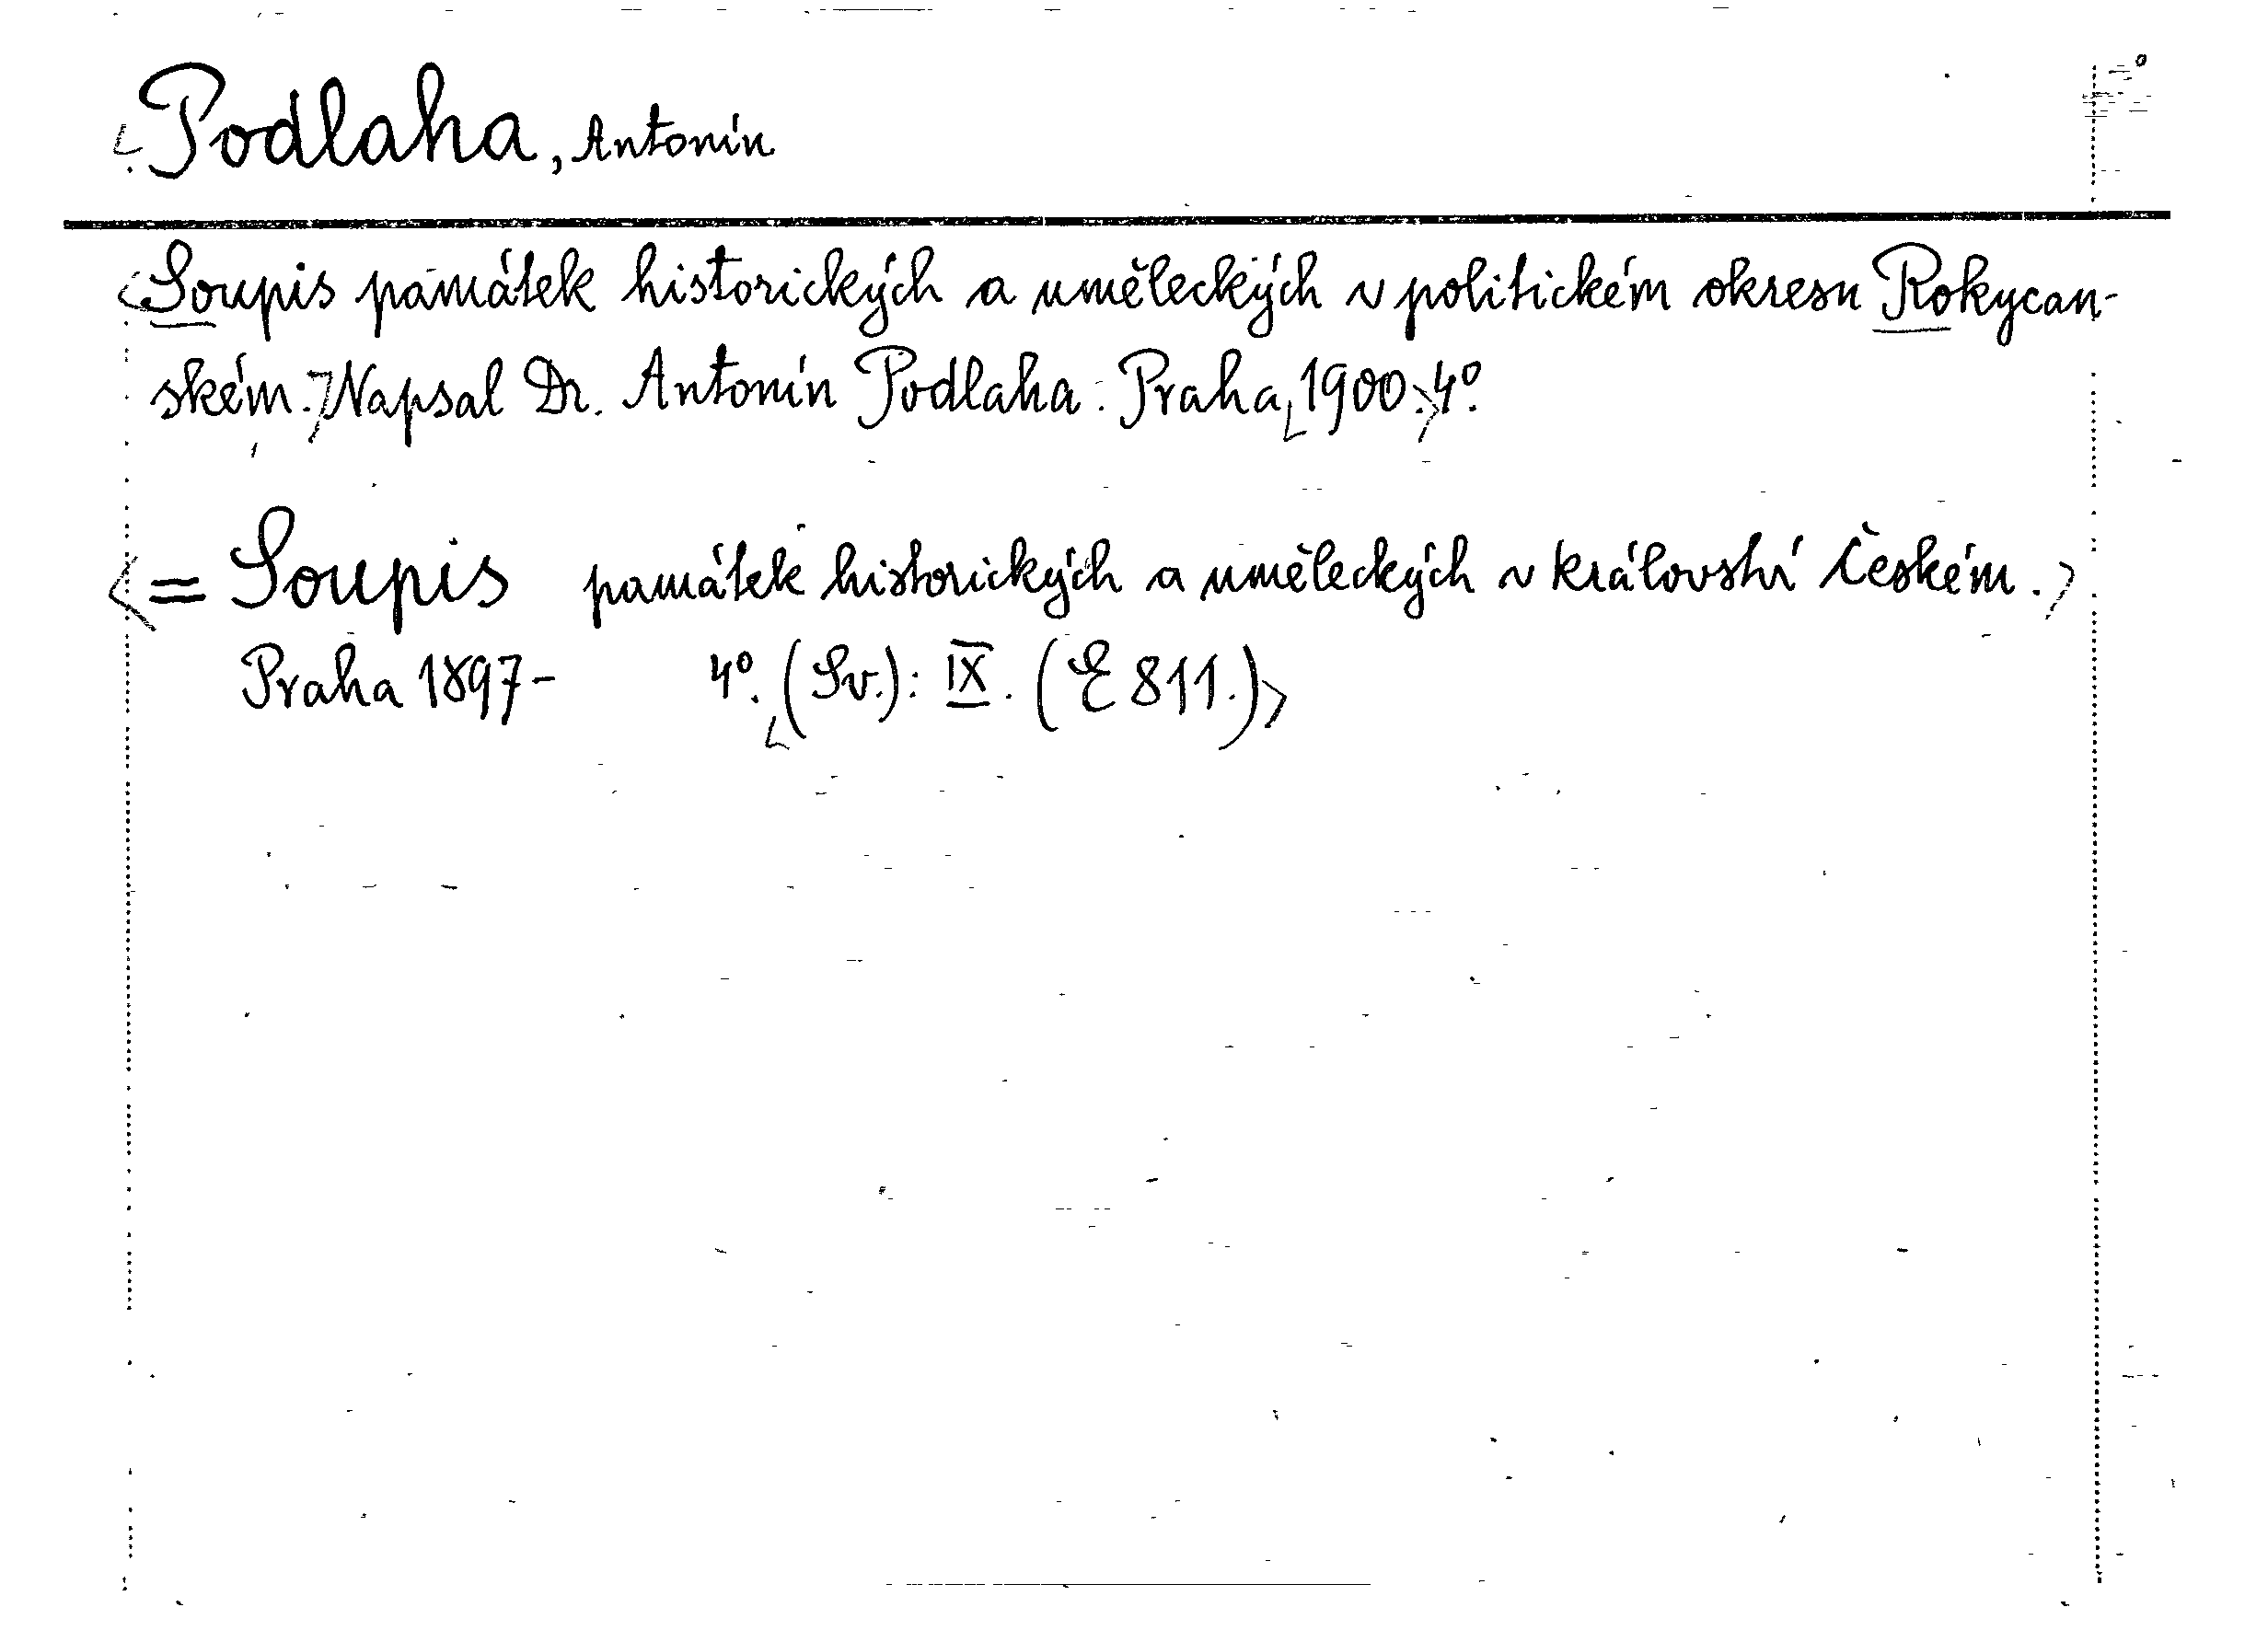 Podlaha, Antonín
Soupis památek historických a uměleckých v politickém okresu Rokycan-
ském. Napsal Dr. Antonín Podlaha. Praha, 1900. 4°.
= Soupis památek historických a uměleckých v království Českém.
Praha 1897- 4°. (Sv.): IX. (E 811.)